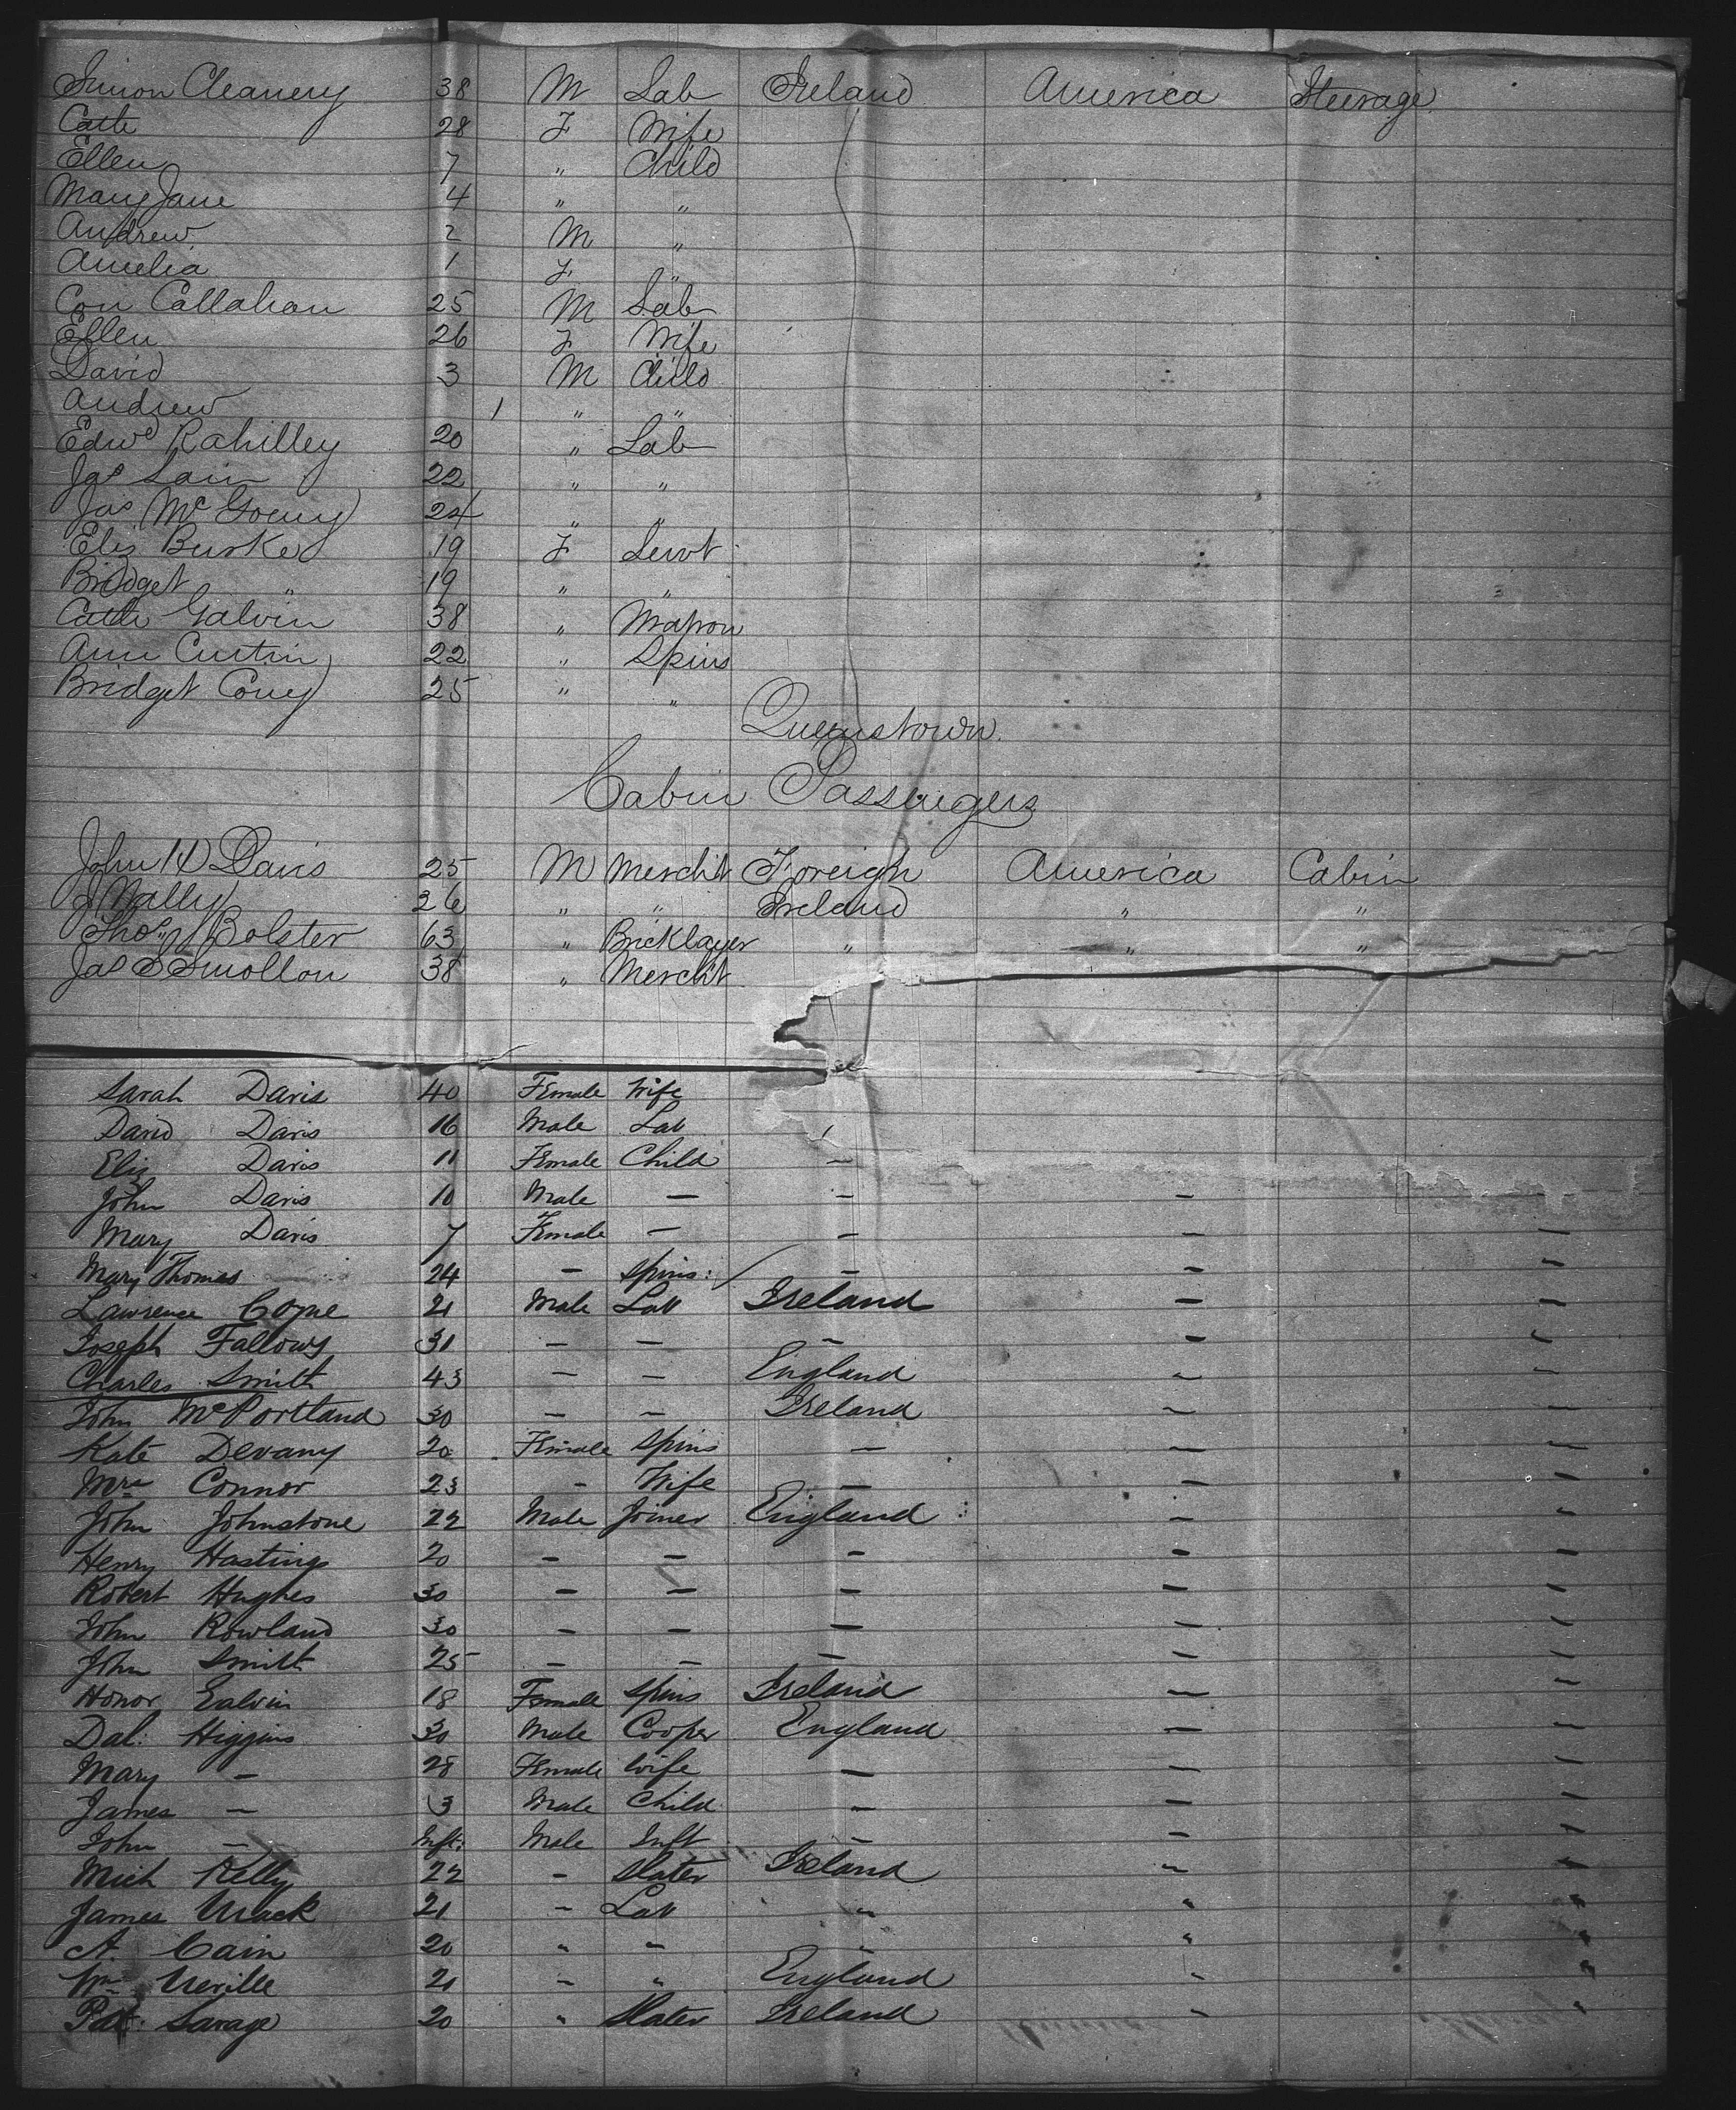 Simon Cleanery 38 M Lab Ireland America Steerage
Cath 28 F Wife
Ellen 7 " Child
Mary Jane 4 " "
Andrew 2 M "
Amelia 1 F "
Con Callahan 25 M Lab
Ellen 26 F Wife
David 3 M Child
Andrew 1 " "
Edwd Rahilley 20 " Lab
Jas 22 " "
Jas 24 " "
Eliz Burke 19 F Servt
Bridget " 19 " "
Cath Galvin 38 " Matron
Ann Curtin 22 " Spins
Bridget Cony 25 " "
Queenstown.
Cabin Passengers
John H Davis 25 M Mercht Foreign America Cabin
J Nally 26 " " Ireland " "
Thos Bolster 63 " Bricklayer " " "
Jas S Smollon 38 " Mercht
Sarah Davis 40 Female Wife
David Davis 16 Male Lab
Eliz Davis 11 Female Child –
John Davis 10 Male – – –
Mary Davis 7 Female – – – –
Mary Thomas 24 – Spins: – – –
Lawrence Coyne 21 Male Lab Ireland – –
Joseph Fallows 31 – – – – –
Charles Smith 43 – – England – –
John McPortland 30 – – Ireland – –
Kate Devany 20 Female Spins – – –
Mrs Connor 23 – Wife – – –
John Johnstone 22 Male Joiner England – –
Henry Hastings 20 – – – – –
Robert Hughes 30 – – – – –
John Rowland 30 – – – – –
John Smith 25 – – – – –
Honor Galvin 18 Female Spins Ireland – –
Dal: Higgins 30 Male Cooper England – –
Mary – 28 Female Wife – – –
James – 3 Male Child – – –
John – Inft: Male Inft – – –
Mich Kelly 22 – Slater Ireland – –
James Mack 21 – Lab " " "
A. Cain 20 " – – " "
Wm Neville 21 – " England " "
Pat: Savage 20 " Slater Ireland " "